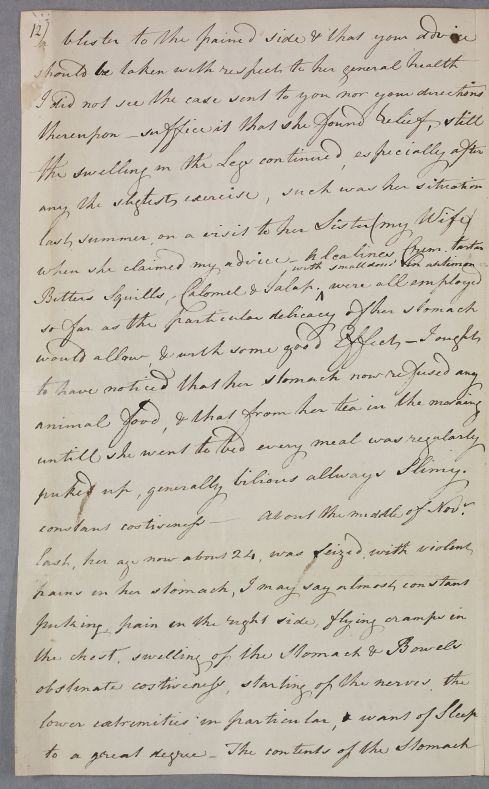 12)
a blister to the pained side & that your advice
should be taken with respect to her general health
I did not see the case sent to you nor your directions
thereupon – suffice it that she found relief, still
the swelling in the Legs continued, especially after
any the slightest exercise, such was her situation
last summer on a visit to her Sister (my Wife)
when she claimed my advice – Alcalines, Crem. tartar
with small doses Tin antimon
Bitters Squills, Calomel & Jalap ^ were all employed
so far as the particular delicacy of her stomach
would allow, & with some good Effect – I ought
to have noticed that her stomach now refused any
animal food, & that from her tea in the morning
untill she went to bed every meal was regularly
puked up, generally bilious allways Slimy.
constant costiveness – About the middle of Novr.
last, her age now about 24, was seized with violent
pains in her stomach, I may say almost constant
puking, pain in the right side, flying cramps in
the chest, swelling of the Stomach & Bowels
obstinate costiveness, starting of the nerves, the
lower extremities in particular, & want of Sleep
to a great degree – The contents of the Stomach